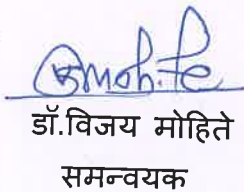 डॉ.विजय मोहिते
समन्वयक